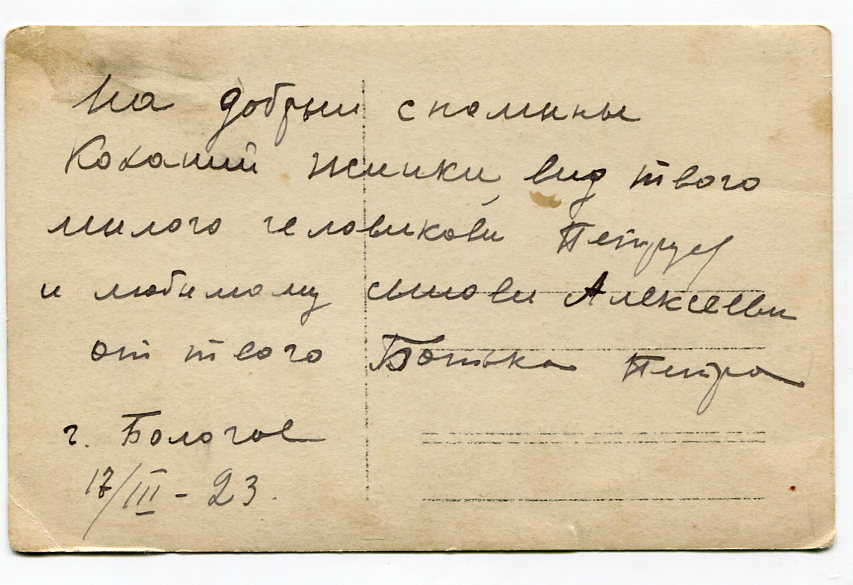 На добрыи спомины
Коханий жинки вид твого
милого человикови Петруся
и любимому сынови Алексееви
от твого Батька Петра
г. Бологое
17/III - 23.